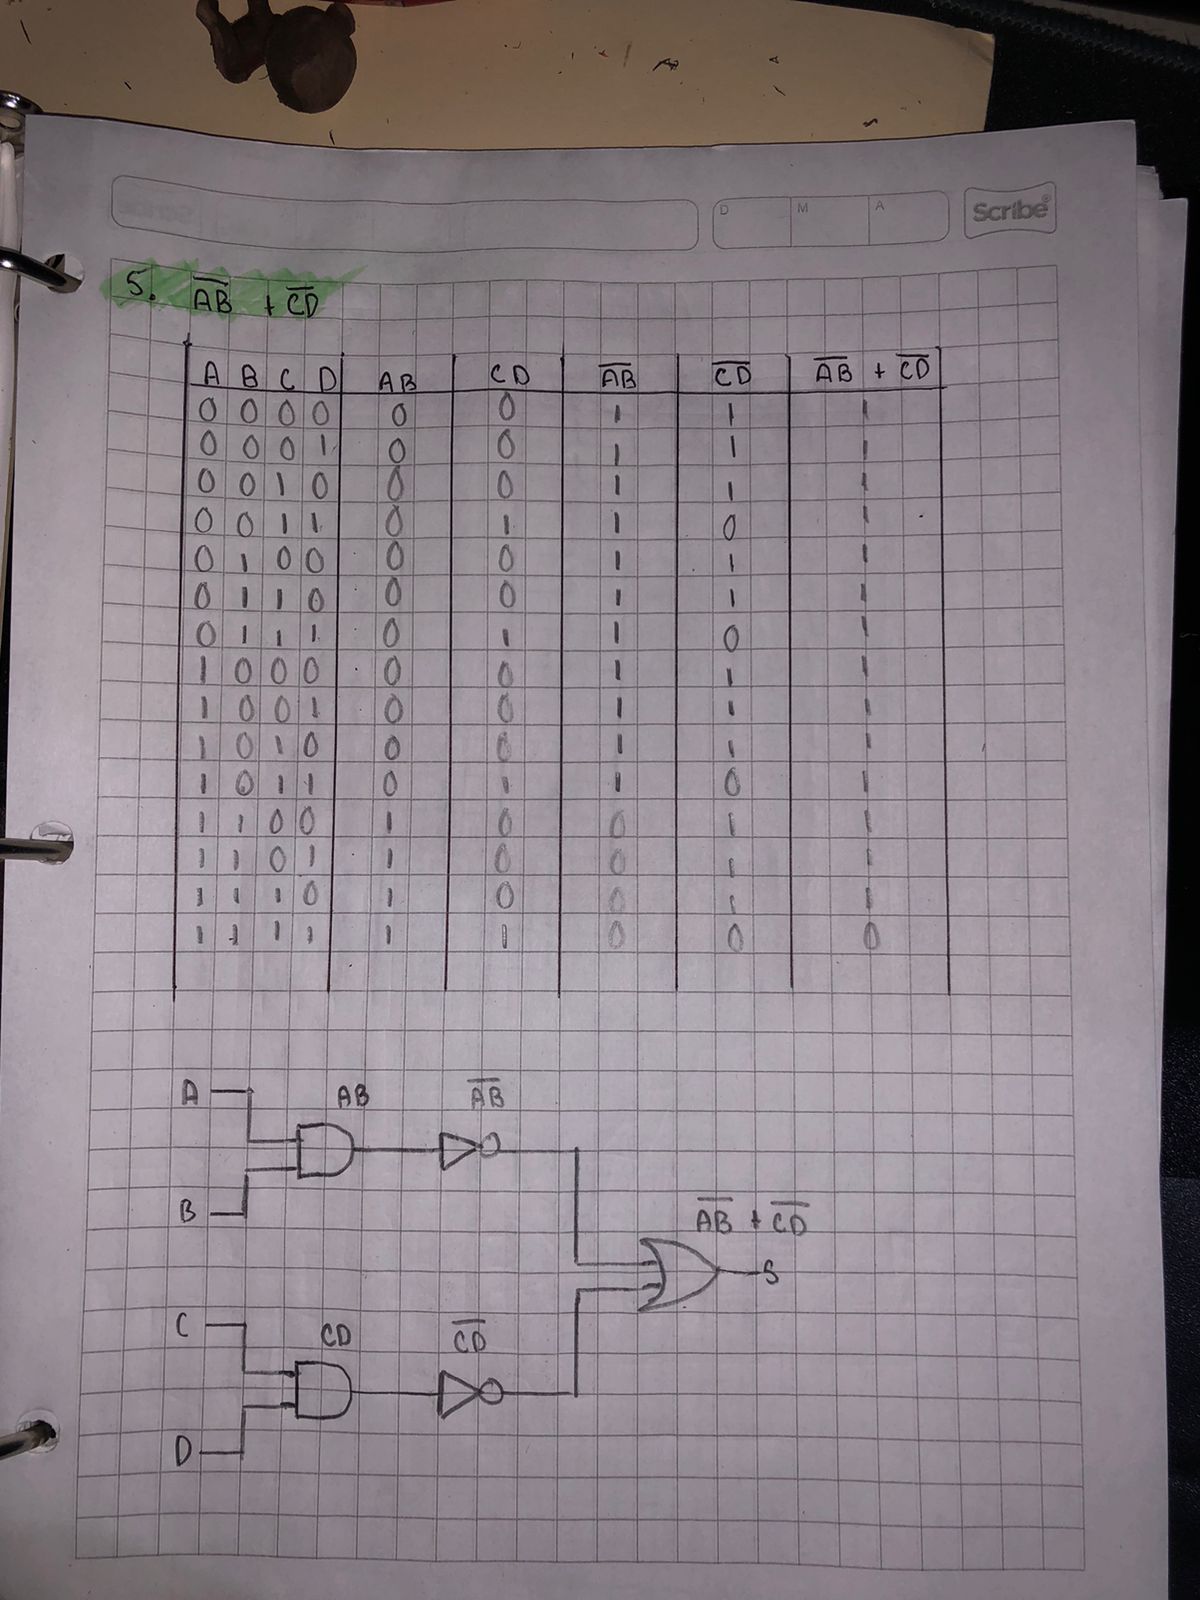 D M A Scribe®
5. A̅B̅ + C̅D̅
A B C D AB CD A̅B̅ C̅D̅ A̅B̅ + C̅D̅
0 0 0 0 0 0 1 1 1
0 0 0 1 0 0 1 1 1
0 0 1 0 0 0 1 1 1
0 0 1 1 0 1 1 0 1
0 1 0 0 0 0 1 1 1
0 1 1 0 0 0 1 1 1
0 1 1 1 0 1 1 0 1
1 0 0 0 0 0 1 1 1
1 0 0 1 0 0 1 1 1
1 0 1 0 0 0 1 1 1
1 0 1 1 0 1 1 0 1
1 1 0 0 1 0 0 1 1
1 1 0 1 1 0 0 1 1
1 1 1 0 1 0 0 1 1
1 1 1 1 1 1 0 0 0
A AB A̅B̅
B
A̅B̅ + C̅D̅
S
C CD C̅D̅
D